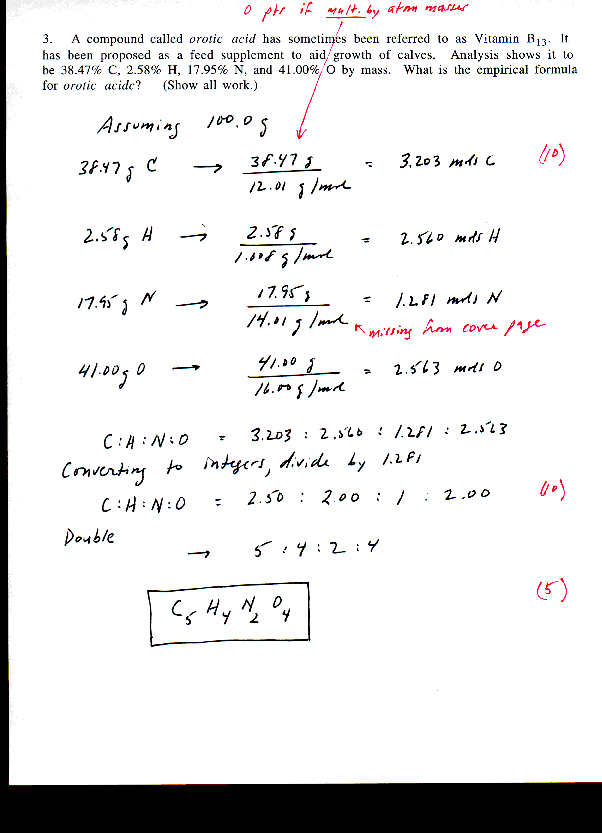 0 pts if mult. by atom masses
3. A compound called orotic acid has sometimes been referred to as Vitamin B13. It
has been proposed as a feed supplement to aid growth of calves. Analysis shows it to
be 38.47% C, 2.58% H, 17.95% N, and 41.00% O by mass. What is the empirical formula
for orotic acide? (Show all work.)
Assuming 100.0 g
38.47 g C → 38.47 g / 12.01 g/mol = 3.203 mols C (10)
2.58 g H → 2.58 g / 1.008 g/mol = 2.560 mols H
17.95 g N → 17.95 g / 14.01 g/mol = 1.281 mols N
missing from cover page
41.00 g O → 41.00 g / 16.00 g/mol = 2.563 mols O
C : H : N : O = 3.203 : 2.560 : 1.281 : 2.563
Converting to integers, divide by 1.281
C : H : N : O = 2.50 : 2.00 : 1 : 2.00 (10)
Double
→ 5 : 4 : 2 : 4
C5 H4 N2 O4 (5)